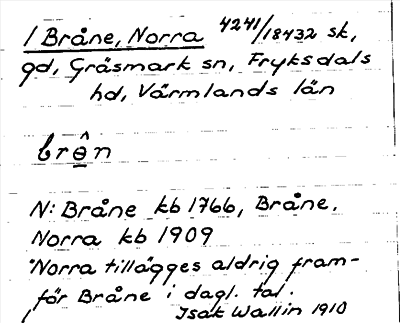 / Bråne, Norra 4241/18432 sk,
gd, Gräsmark sn, Fryksdals
hd, Värmlands län
brө̂n
N: Bråne kb 1766, Bråne,
Norra kb 1909
"Norra tillägges aldrig fram-
för Bråne i dagl. tal.
Isak Wallin 1910